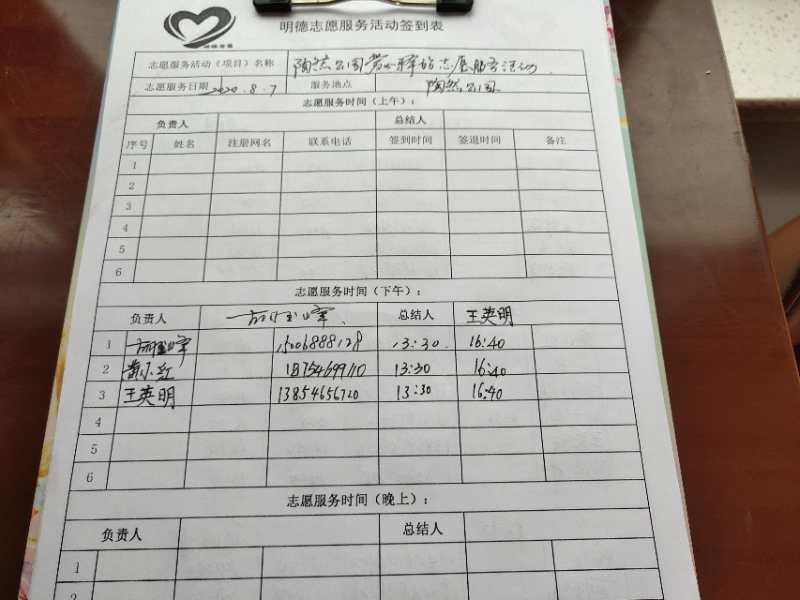 明德志愿服务活动签到表
志愿服务活动（项目）名称 陶然公园 志愿服务活动
志愿服务日期 2020.8.7 服务地点 陶然公园
志愿服务时间（上午）：
负责人 总结人
序号 姓名 注册网名 联系电话 签到时间 签退时间 备注
1
2
3
4
5
6
志愿服务时间（下午）：
负责人 总结人 王英明
1 15006888128 13:30 16:40
2 黄小红 18754699710 13:30 16:40
3 王英明 13854656720 13:30 16:40
4
5
6
志愿服务时间（晚上）：
负责人 总结人
1
2